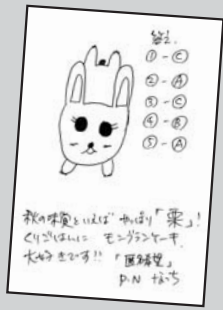 答え.
①-Ⓒ
②-Ⓐ
③-Ⓒ
④-Ⓑ
⑤-Ⓐ
秋の味覚といえば やっぱり「栗」!
くりごはんに モンブランケーキ
大好きです!! 「匿名希望」
P.N